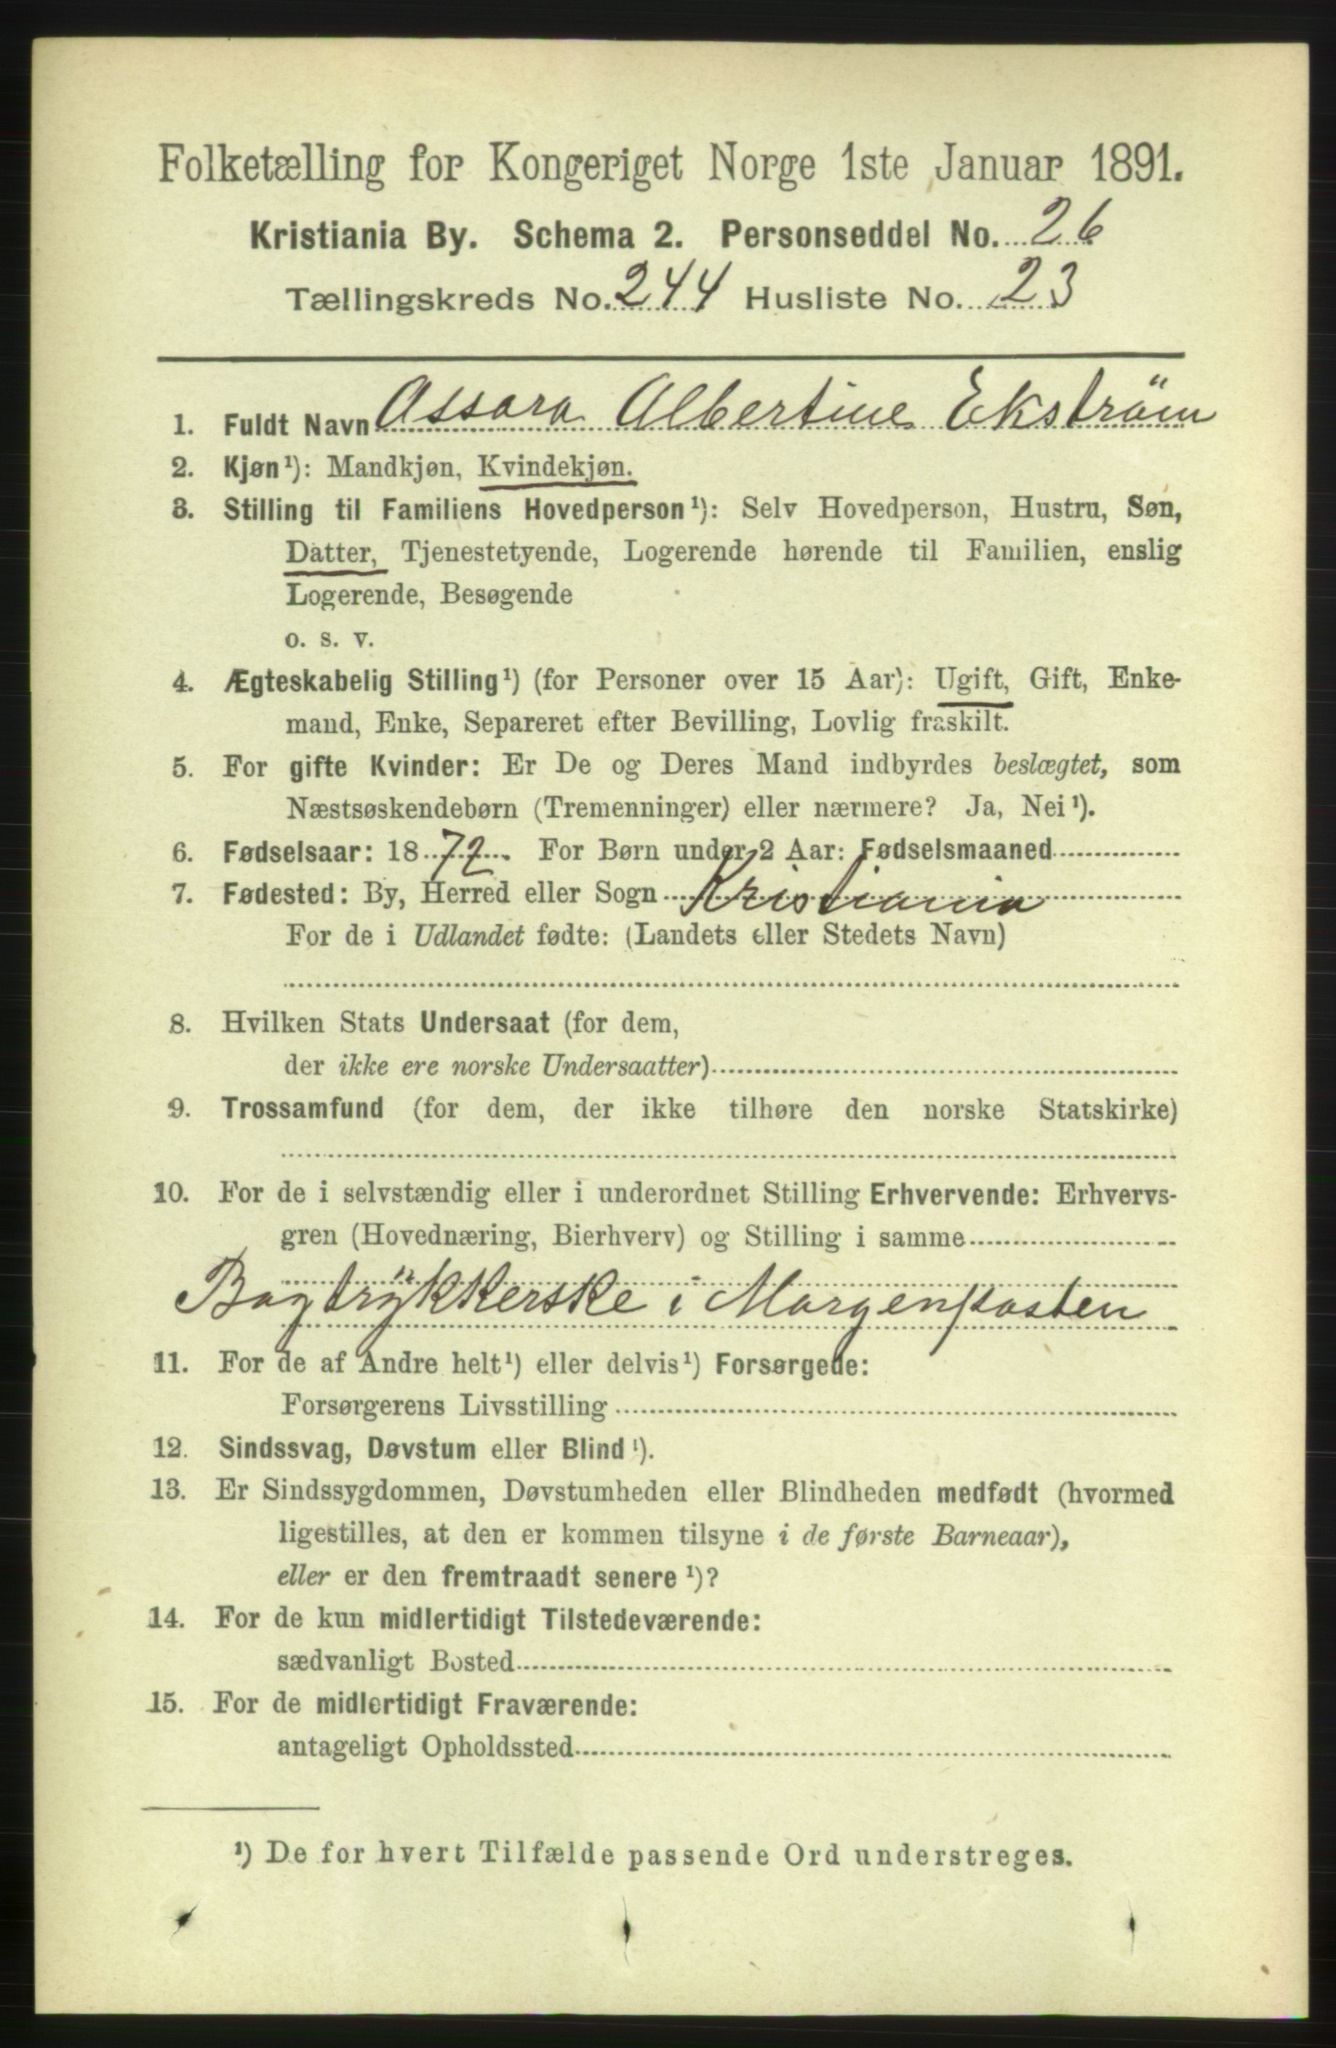 Folketælling for Kongeriget Norge 1ste Januar 1891.
Kristiania By. Schema 2. Personseddel No. 26
Tællingskreds No. 244 Husliste No. 23
1. Fuldt Navn Assara Albertine Ekström
2. Kjøn¹): Mandkjøn, Kvindekjøn.
3. Stilling til Familiens Hovedperson¹): Selv Hovedperson, Hustru, Søn,
Datter, Tjenestetyende, Logerende hørende til Familien, enslig
Logerende, Besøgende
o. s. v.
4. Ægteskabelig Stilling¹) (for Personer over 15 Aar): Ugift, Gift, Enke-
mand, Enke, Separeret efter Bevilling, Lovlig fraskilt.
5. For gifte Kvinder: Er De og Deres Mand indbyrdes beslægtet, som
Næstsøskendebørn (Tremenninger) eller nærmere? Ja, Nei¹).
6. Fødselsaar: 1872. For Børn under 2 Aar: Fødselsmaaned
7. Fødested: By, Herred eller Sogn Kristiania
For de i Udlandet fødte: (Landets eller Stedets Navn)
8. Hvilken Stats Undersaat (for dem,
der ikke ere norske Undersaatter)
9. Trossamfund (for dem, der ikke tilhøre den norske Statskirke)
10. For de i selvstændig eller i underordnet Stilling Erhvervende: Erhvervs-
gren (Hovednæring, Bierhverv) og Stilling i samme
Bogtrÿkkerske i Morgenposten
11. For de af Andre helt¹) eller delvis¹) Forsørgede:
Forsørgerens Livsstilling
12. Sindssvag, Døvstum eller Blind¹).
13. Er Sindssygdommen, Døvstumheden eller Blindheden medfødt (hvormed
ligestilles, at den er kommen tilsyne i de første Barneaar),
eller er den fremtraadt senere¹)?
14. For de kun midlertidigt Tilstedeværende:
sædvanligt Bosted
15. For de midlertidigt Fraværende:
antageligt Opholdssted
¹) De for hvert Tilfælde passende Ord understreges.